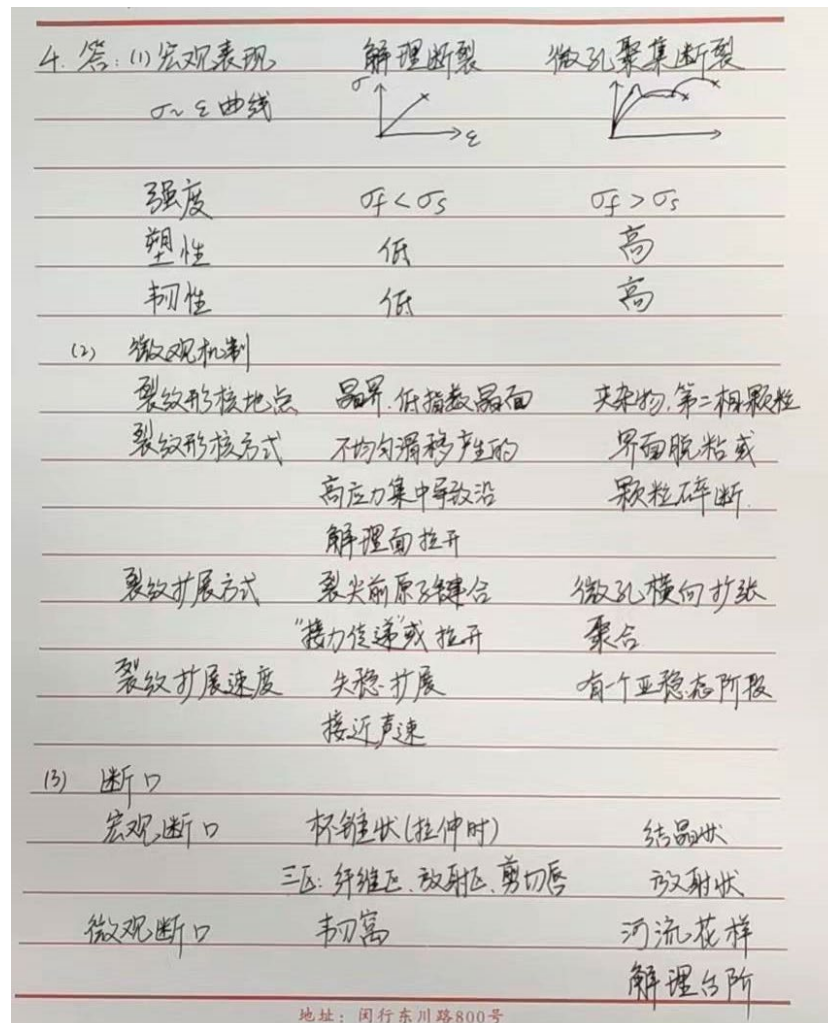 4. 答: (1) 宏观表现 解理断裂 微孔聚集断裂
σ~ε曲线 σ ε
强度 σf<σs σf>σs
塑性 低 高
韧性 低 高
(2) 微观机制
裂纹形核地点 晶界.低指数晶面 夹杂物,第二相颗粒
裂纹形核方式 不均匀滑移产生的 界面脱粘或
高应力集中导致沿 颗粒碎断.
解理面拉开
裂纹扩展方式 裂尖前原子键合 微孔横向扩张
"接力传递"或拉开 聚合
裂纹扩展速度 失稳扩展 有一个亚稳态阶段
接近声速
(3) 断口
宏观断口 杯锥状(拉伸时) 结晶状
三区: 纤维区、放射区、剪切唇 放射状
微观断口 韧窝 河流花样
解理台阶
地址: 闵行东川路800号